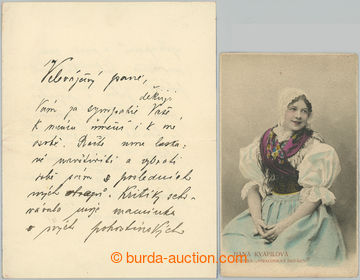 Velevážený pane,
děkuji
Vám za sympathie Vaše
k mému umění i k mé
navštíviti a vybrati
sobě sám z posledních
mých obrazů. Kritiky scho-
vávala moje maminka
o mých pohostinských
HANA KVAPILOVÁ
burda-auction.com